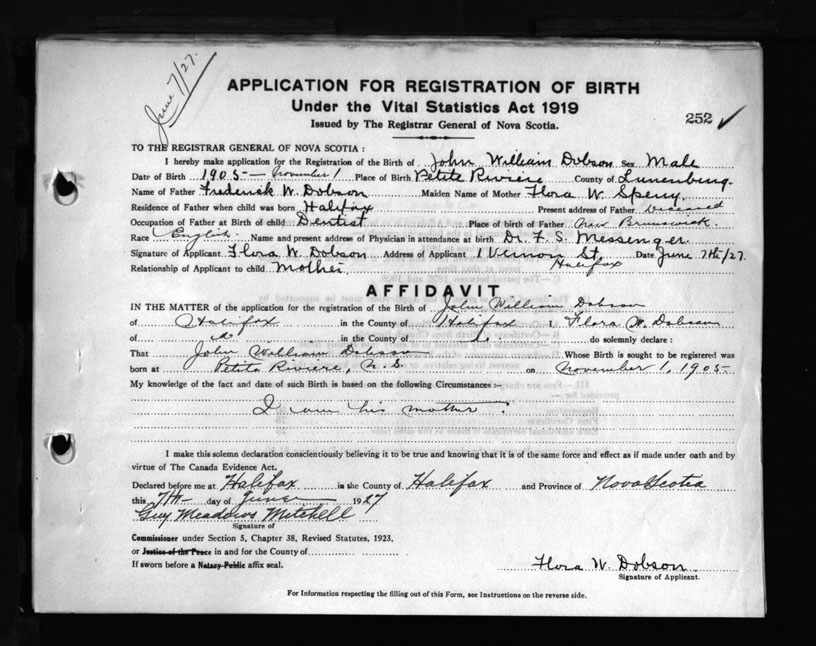 June 7/27.
APPLICATION FOR REGISTRATION OF BIRTH
Under the Vital Statistics Act 1919
252 ✓
Issued by The Registrar General of Nova Scotia.
TO THE REGISTRAR GENERAL OF NOVA SCOTIA :
I hereby make application for the Registration of the Birth of John William Dobson Sex Male
Date of Birth 1905 — November 1 Place of Birth Petite Riviere County of Lunenburg.
Name of Father Frederick W. Dobson Maiden Name of Mother Flora W.
Residence of Father when child was born Halifax Present address of Father Deceased
Occupation of Father at Birth of child Dentist Place of birth of Father New Brunswick.
Race English. Name and present address of Physician in attendance at birth Dr. F. S. Messenger
Signature of Applicant Flora W. Dobson Address of Applicant 1 Vernon St. Halifax Date June 7th/27.
Relationship of Applicant to child Mother.
AFFIDAVIT
IN THE MATTER of the application for the registration of Birth of John William Dobson
of Halifax in the County of Halifax I, Flora W. Dobson
of in the County of do solemnly declare :
That John William Dobson Whose Birth is sought to be registered was
born at Petite Riviere, N.S. on November 1, 1905-
My knowledge of the fact and date of such Birth is based on the following Circumstances :-
I am his mother.
I make this solemn declaration conscientiously believing it to be true and knowing that it is of the same force and effect as if made under oath and by
virtue of The Canada Evidence Act.
Declared before me at Halifax in the County of Halifax and Province of Nova Scotia
this 7th day of June 1927
Guy Meadows Mitchell
Signature of
Commissioner under Section 5, Chapter 38, Revised Statutes, 1923,
or Justice of the Peace in and for the County of
If sworn before a Notary Public affix seal.
Flora W. Dobson
Signature of Applicant.
For Information respecting the filling out of this Form, see Instructions on the reverse side.